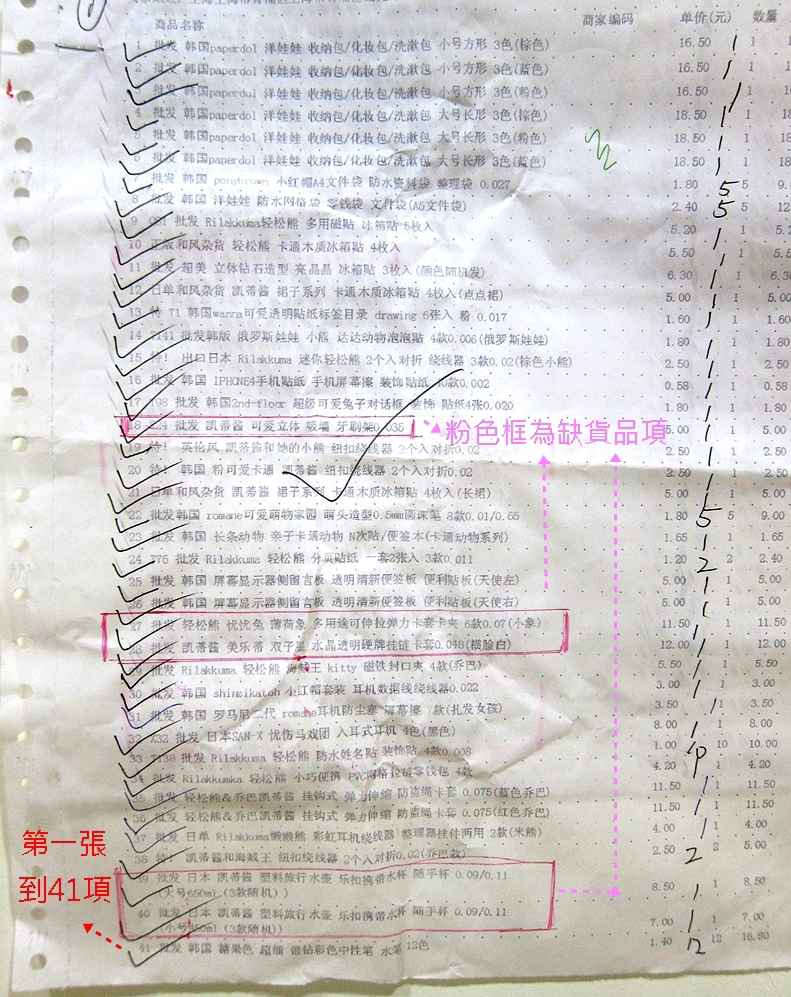 商品名称 商家编码 单价(元) 数量
1 批发 韩国paperdol 洋娃娃 收纳包/化妆包/洗漱包 小号方形 3色(棕色) 16.50 1 1
2 批发 韩国paperdol 洋娃娃 收纳包/化妆包/洗漱包 小号方形 3色(蓝色) 16.50 1 1
3 批发 韩国paperdol 洋娃娃 收纳包/化妆包/洗漱包 小号方形 3色(粉色) 16.50 1 1
4 批发 韩国paperdol 洋娃娃 收纳包/化妆包/洗漱包 大号长形 3色(棕色) 18.50 1 1
5 批发 韩国paperdol 洋娃娃 收纳包/化妆包/洗漱包 大号长形 3色(粉色) 18.50 1 1
6 批发 韩国paperdol 洋娃娃 收纳包/化妆包/洗漱包 大号长形 3色(蓝色) 18.50 1 1
批发 韩国 ponybrown 小红帽A4文件袋 防水资料袋 整理袋 0.027 1.80 5 5
8 批发 韩国 洋娃娃 防水网格袋 零钱袋 文件袋(A5文件袋) 2.40 5 5
9 批发 Rilakkuma轻松熊 多用磁贴 冰箱贴 5枚入 5.20 1 1
10 正版和风杂货 轻松熊 卡通木质冰箱贴 4枚入 5.50 1 1
11 批发 超美 立体钻石造型 亮晶晶 冰箱贴 3枚入(颜色随机发) 6.30 1 1
12 日单和风杂货 凯蒂酱 裙子系列 卡通木质冰箱贴 4枚入(点点裙) 5.00 1 1 5.00
13 特 T1 韩国wanna可爱透明贴纸标签目录 drawing 6张入 粉 0.017 1.60 1 1 1.60
14 T141 批发韩版 俄罗斯娃娃 小熊 达达动物泡泡贴 4款0.006(俄罗斯娃娃) 1.80 1 1 1.80
15 特! 出口日本 Rilakkuma 迷你轻松熊 2个入对折 绕线器 3款0.02(棕色小熊) 2.50 1 1 2.50
16 批发 韩国 IPHONE4手机贴纸 手机屏幕擦 装饰贴纸 10款0.002 0.58 1 1 0.58
17 T98 批发 韩国2nd-floor 超级可爱兔子对话框 装饰 贴纸4张0.020 1.80 1 1 1.80
18 Z24 批发 凯蒂酱 可爱立体 吸墙 牙刷架0.035 5.00 1 1 5.00
粉色框為缺貨品項
19 特! 英伦风 凯蒂酱和她的小熊 纽扣绕线器 2个入对折0.02 2.50 1 1 2.50
20 特! 韩国 粉可爱卡通 凯蒂酱 纽扣绕线器 2个入对折0.02 2.50 1 1 2.50
21 日单和风杂货 凯蒂酱 裙子系列 卡通木质冰箱贴 4枚入(长裙) 5.00 1 1 5.00
22 批发韩国 romane可爱萌物家园 萌头造型0.5mm圆珠笔 8款0.01/0.65 1.80 5 5 9.00
23 批发 韩国 长条动物 亲子卡通动物 N次贴/便签本(卡通动物系列) 1.65 1 1 1.65
24 T76 批发 Rilakkuma 轻松熊 分页贴纸 一套2张入 3款0.011 1.20 2 2 2.40
25 批发 韩国 屏幕显示器侧留言板 透明清新便签板 便利贴板(天使左) 5.00 1 1 5.00
26 批发 韩国 屏幕显示器侧留言板 透明清新便签板 便利贴板(天使右) 5.00 1 1 5.00
27 批发 轻松熊 忧忧兔 薄荷象 多用途可伸拉弹力卡套卡夹 6款0.07(小象) 11.50 1 1 11.50
28 批发 凯蒂酱 美乐蒂 双子星 水晶透明硬牌挂链 卡套0.048(横脸白) 12.00 1 1 12.00
29 批发 Rilakkuma 轻松熊 海贼王 kitty 磁铁封口夹 4款(乔巴) 5.50 1 1 5.50
30 批发 韩国 shinzikatoh 小红帽套装 耳机数据线绕线器0.022 3.00 1 1 3.00
31 批发 韩国 罗马尼二代 romane耳机防尘塞 屏幕擦 7款(扎发女孩) 3.50 1 1 3.50
32 X32 批发 日本SAN-X 忧伤马戏团 入耳式耳机 4色(黑色) 8.00 1 1 8.00
33 T138 批发 Rilakkuma 轻松熊 防水姓名贴 装饰贴 4款0.008 1.00 10 10 10.00
34 批发 Rilakkumka 轻松熊 小巧便携 PVC网格拉链零钱包 4款 4.20 1 1 4.20
35 批发 轻松熊&乔巴凯蒂酱 挂钩式 弹力伸缩 防盗绳卡套 0.075(蓝色乔巴) 11.50 1 1 11.50
36 批发 轻松熊&乔巴凯蒂酱 挂钩式 弹力伸缩 防盗绳卡套 0.075(红色乔巴) 11.50 1 1 11.50
37 批发 日单 Rilakkuma懒懒熊 彩虹耳机绕线器 整理器挂件两用 2款(米熊) 4.00 1 1 4.00
38 特! 凯蒂酱和海贼王 纽扣绕线器 2个入对折0.02(乔巴款) 2.50 2 2 5.00
39 批发 日本 凯蒂酱 塑料旅行水壶 乐扣携带水杯 随手杯 0.09/0.11 8.50 1 1 8.50
(大号650ml (3款随机))
40 批发 日本 凯蒂酱 塑料旅行水壶 乐扣携带水杯 随手杯 0.09/0.11 7.00 1 1 7.00
(小号450ml (3款随机))
41 批发 韩国 糖果色 超细 带钻彩色中性笔 水笔 12色 1.40 12 12 16.80
第一張
到41項